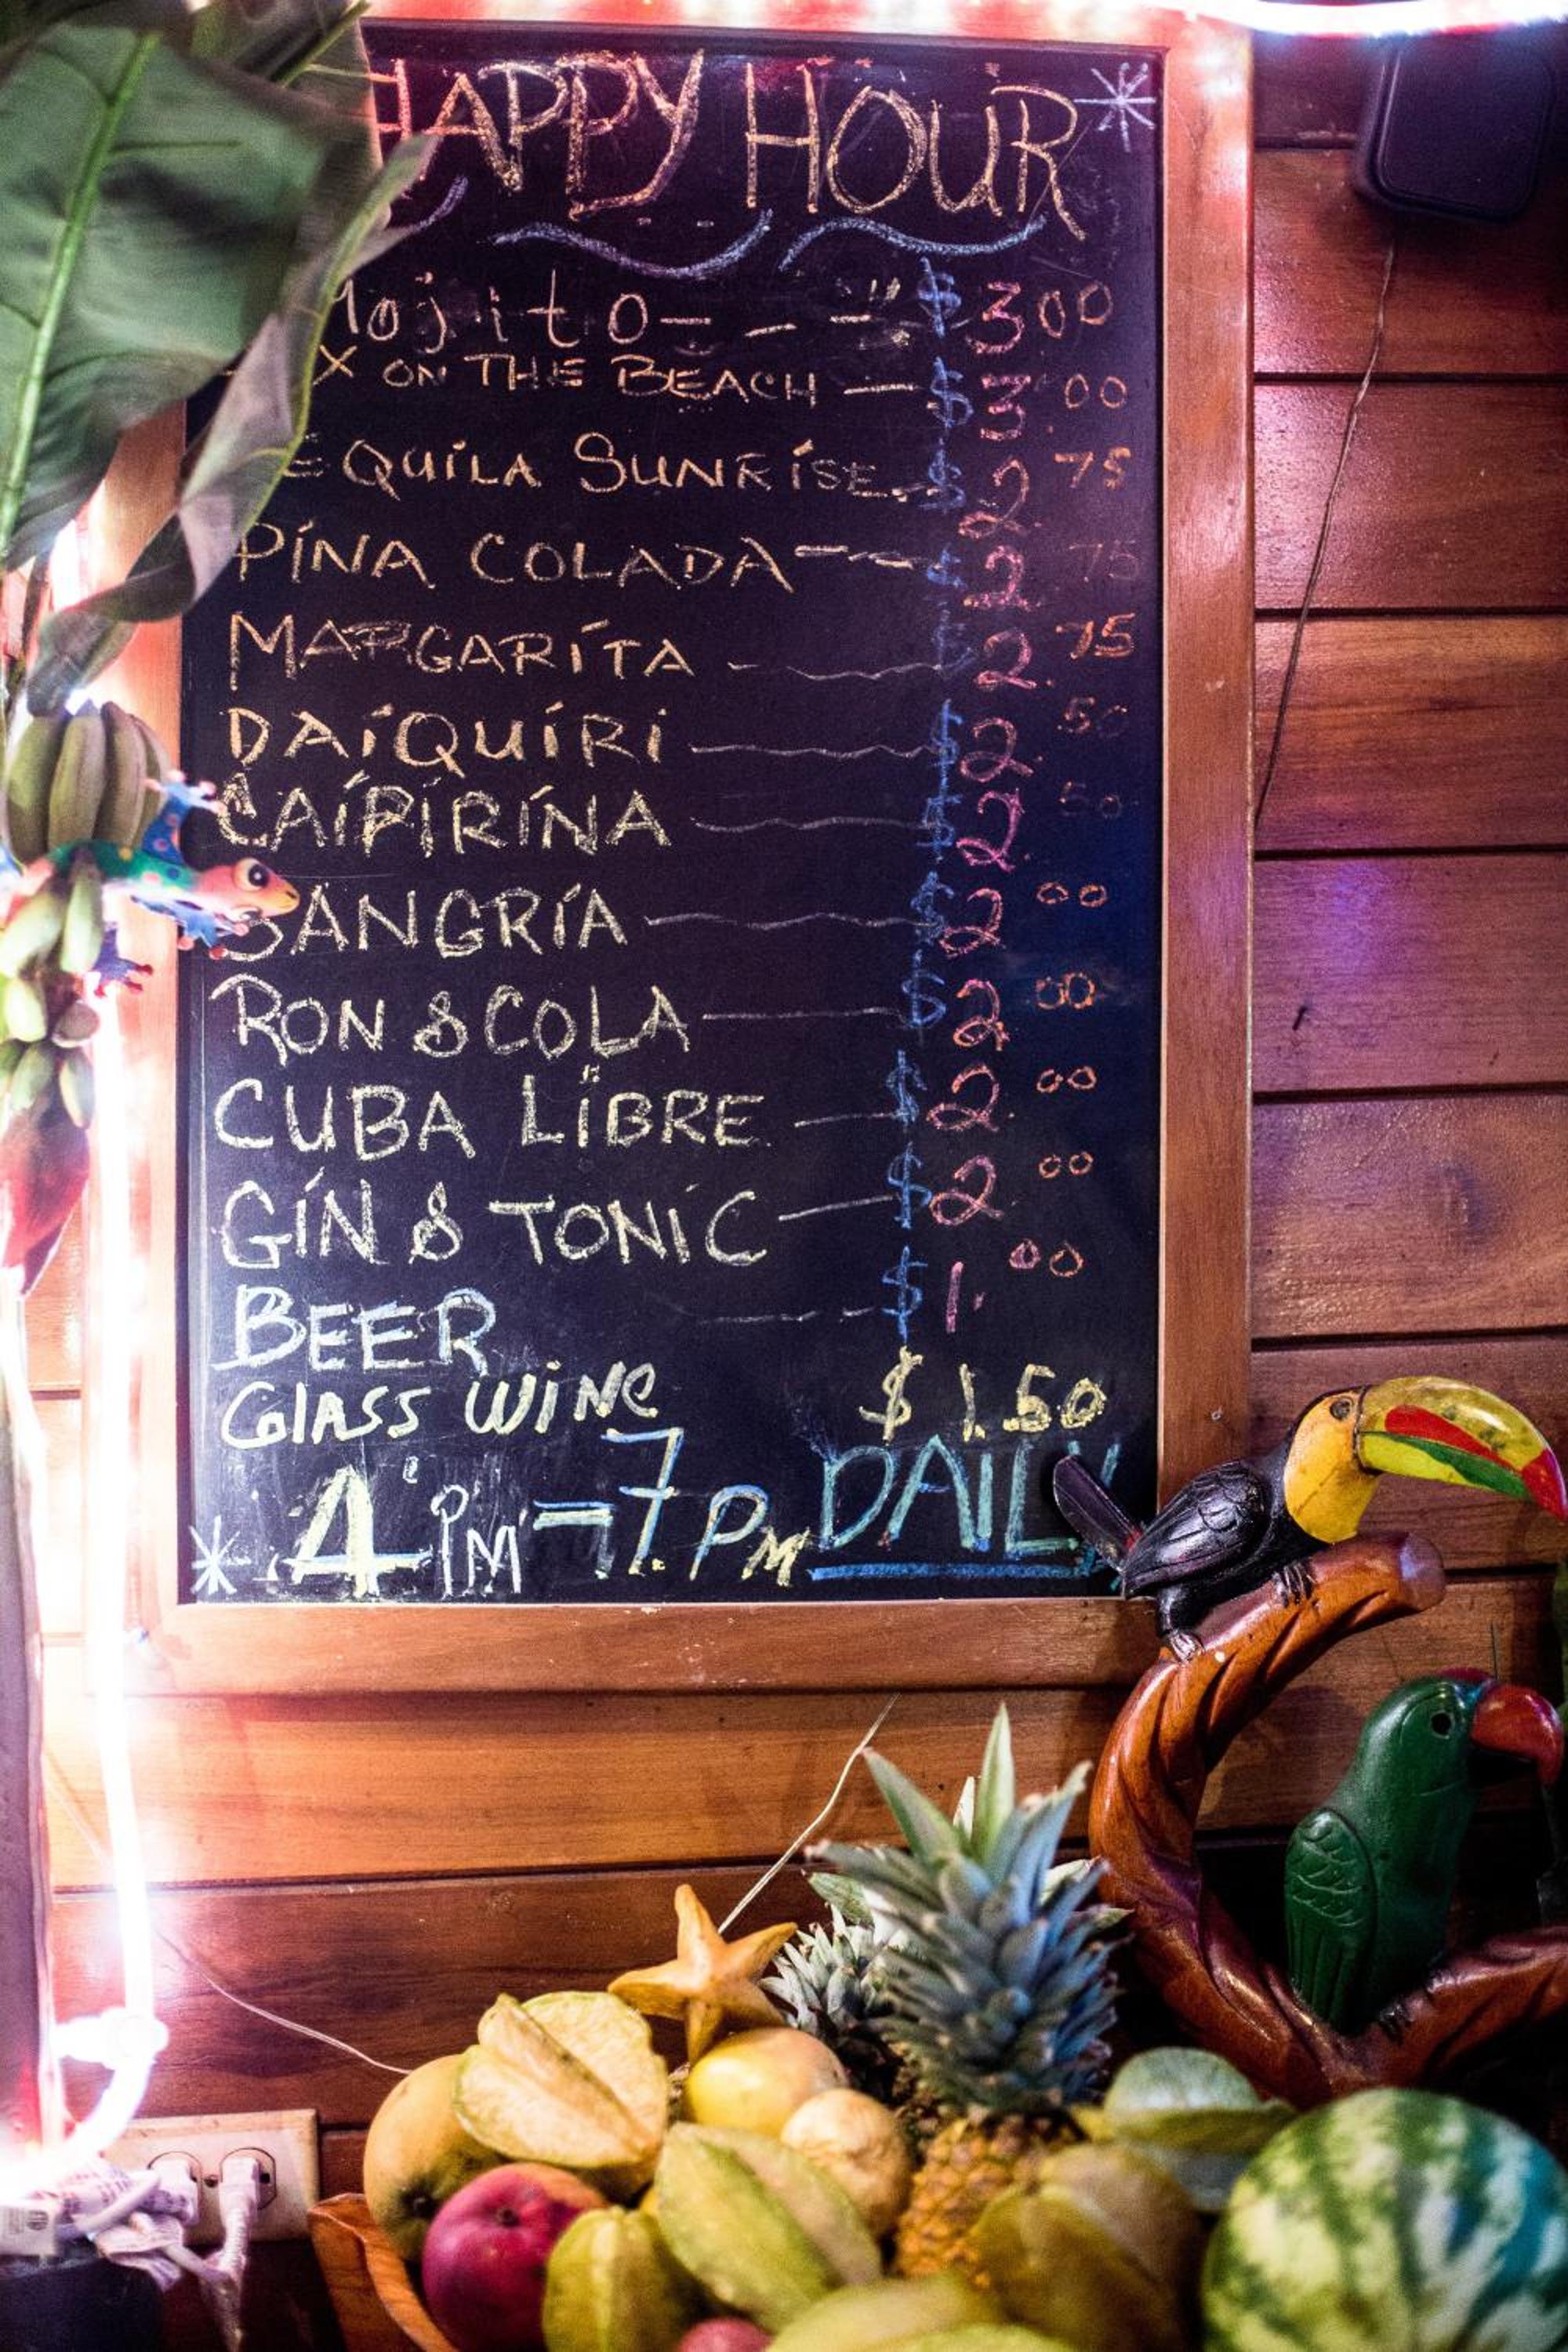 HAPPY HOUR
Mojito $3 00
X ON THE BEACH $3 00
EQUILA SUNRISE $2 75
PINA COLADA $2 75
MARGARITA $2.75
DAIQUIRI $2.50
CAIPIRINA $2. 50
SANGRIA $2 00
RON & COLA $2 00
CUBA LIBRE $2. 00
GIN & TONIC $2 00
BEER $1. 00
GLASS WINE $1.50
4 PM - 7 PM DAILY